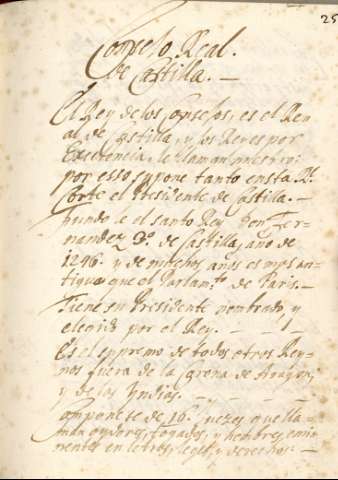 25
Consejo Real.
de Castilla. —
El Rey de los Consejos, es el Re
al de Castilla, y los Reyes por
Excelencia, le llaman nuestro:
por esso supone tanto en sta Rl.
Corte el Presidente de Castilla. —
fundo le el santo Rey Don Fer-
nandez 3º. de Castilla, año de
1246. y de muchos años es mas an-
tiguo que el Parlamto. de Paris. —
Tiene su Presidente nombrado, y
elegido por el Rey. — — —
Es el supremo de todos otros Rey-
nos fuera de la corona de Aragon,
y de las Yndias. —
Componese de 16. juezes que lla
man oydores, Togados, y hombres emi
nentes en letras, leyes, y derechos. —